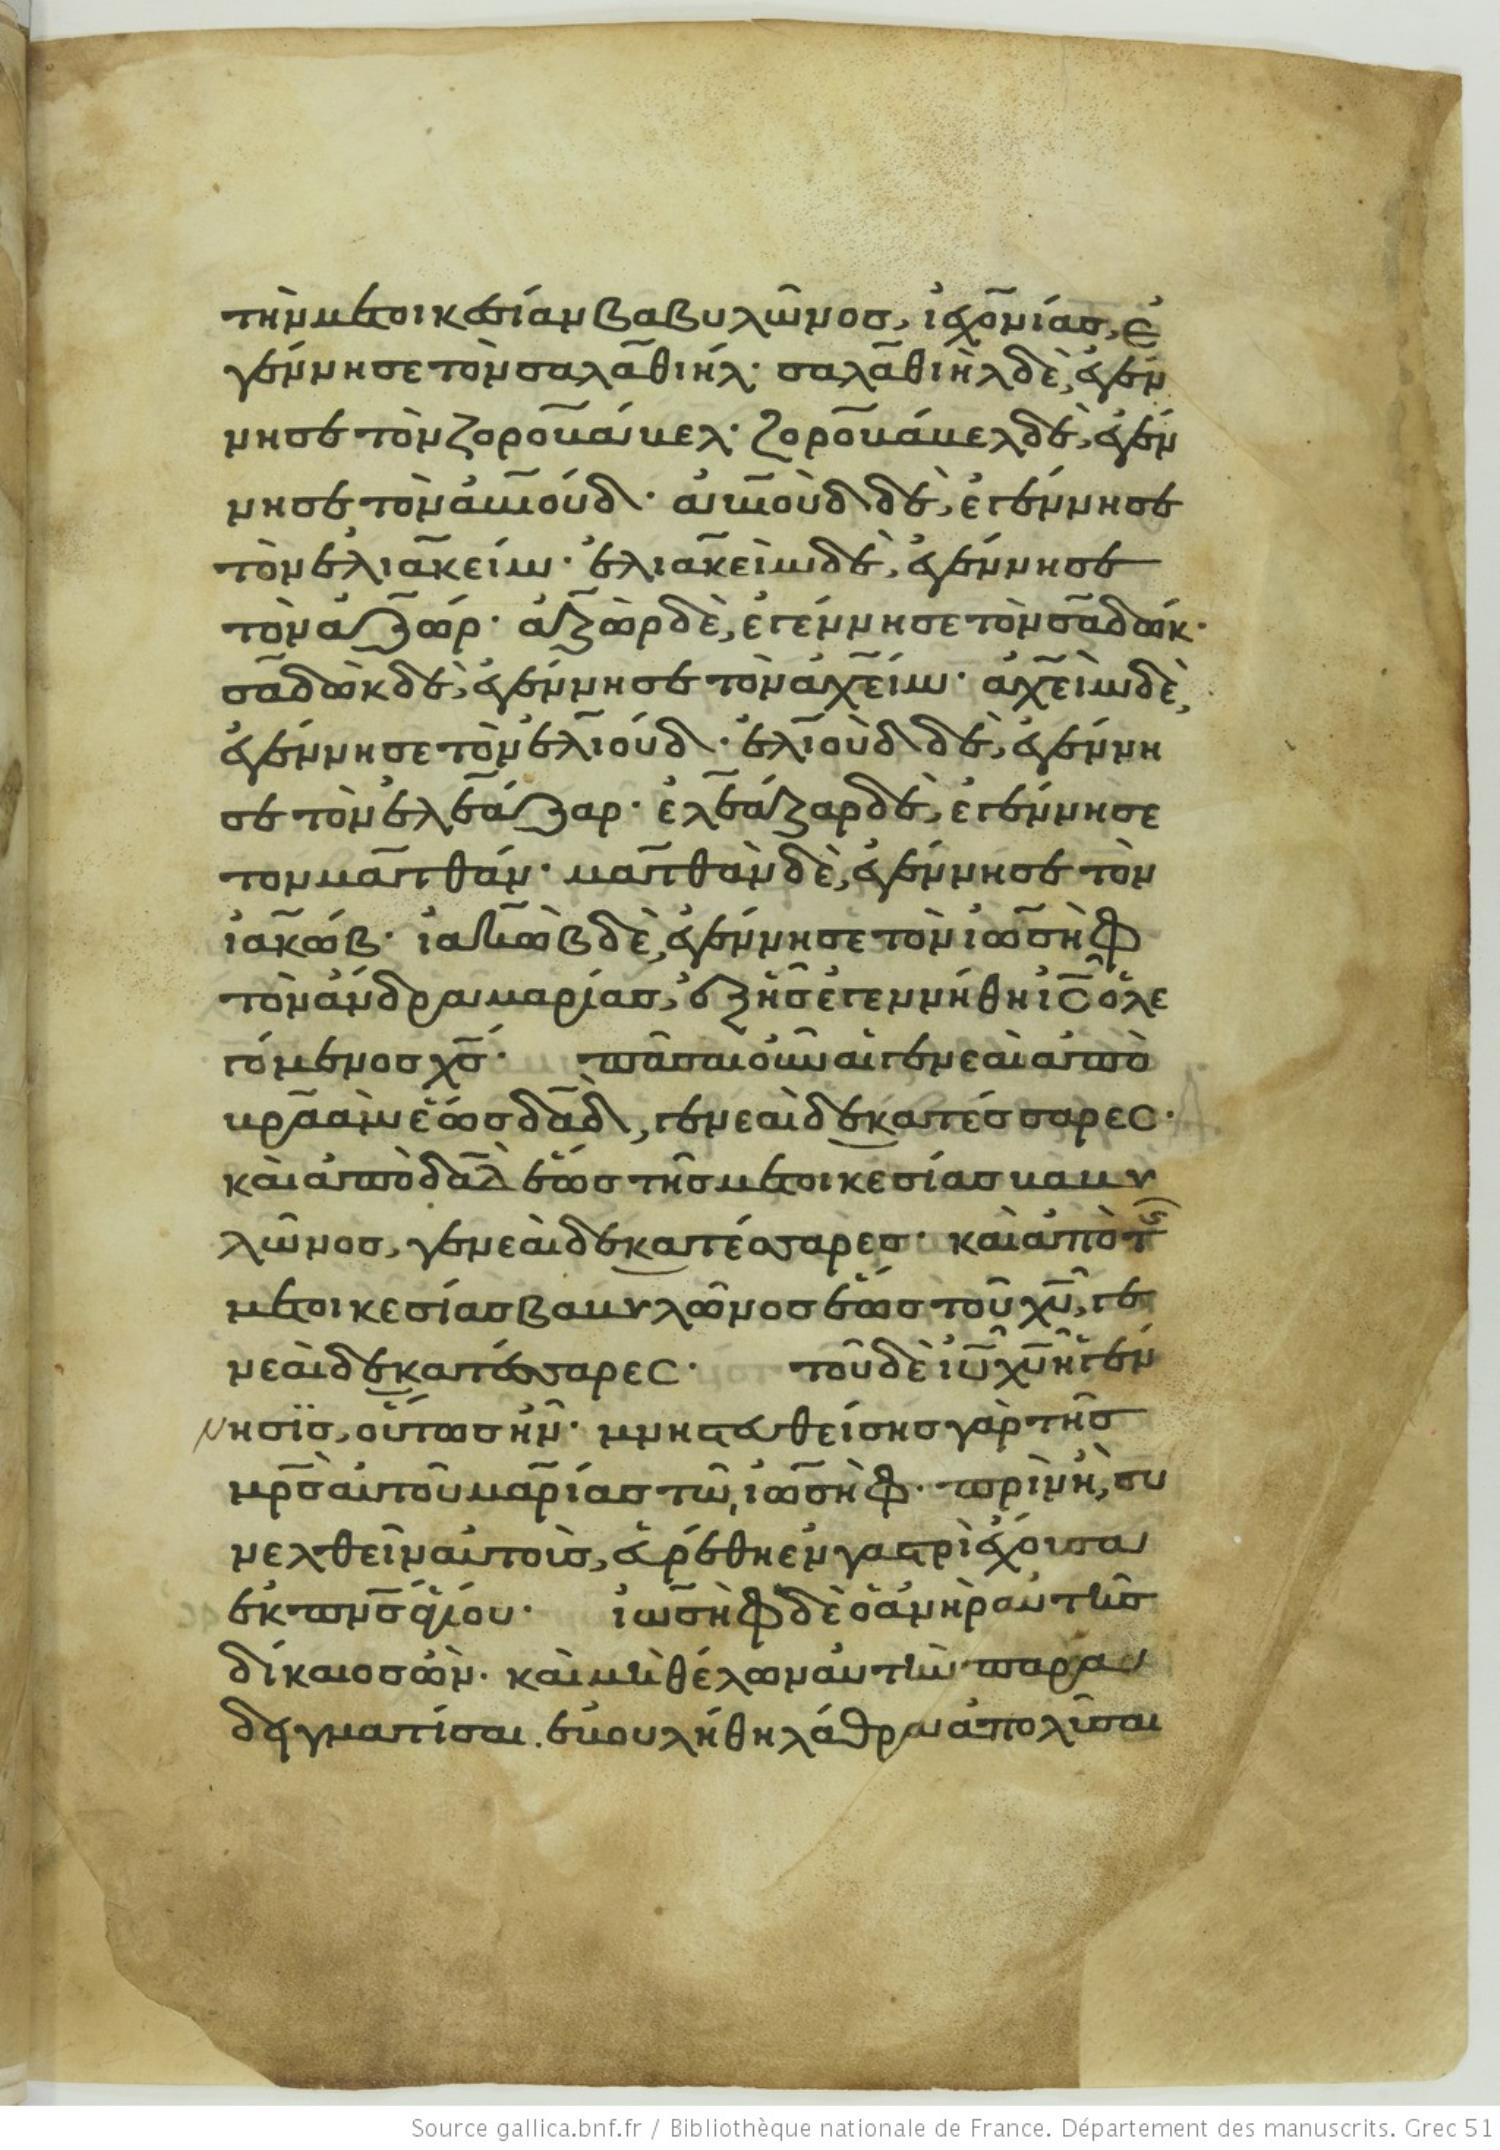 τὴν μετοικεσίαν βαβυλῶνος, ἰεχονίας, ἐ
γέννησε τὸν σαλαθιήλ· σαλαθιὴλ δὲ, ἐγέν
νησε τὸν ζοροβάβελ· ζοροβάβελ δὲ, ἐγέν
νησε τὸν ἀβιούδ· ἀβιοὺδ δὲ, ἐγέννησε
τὸν ἐλιακείμ· ἐλιακεὶμ δὲ, ἐγέννησε
τὸν ἀζώρ· ἀζὼρ δὲ, ἐγέννησε τὸν σαδώκ·
σαδὼκ δὲ, ἐγέννησε τὸν ἀχείμ· ἀχεὶμ δὲ,
ἐγέννησε τὸν ἐλιούδ· ἐλιοὺδ δὲ, ἐγέννη
σε τὸν ἐλεάζαρ· ἐλεάζαρ δὲ, ἐγέννησε
τον ματθάν· ματθὰν δὲ, ἐγέννησε τὸν
ἰακώβ· ἰακὼβ δὲ, ἐγέννησε τὸν ἰωσὴφ
τὸν ἄνδρα μαρίας, ἐξ ἧς ἐγεννήθη ις̅ ὁ λε
γόμενος χς̅· πᾶσαι οὖν αἱ γενεαὶ ἀπὸ
βραὰμ ἕως δαδ̅, γενεαὶ δεκατέσσαρες·
καὶ ἀπὸ δαδ̅ ἕως τῆς μετοικεσίας βαβυ
λῶνος, γενεαὶ δεκατέσσαρες· καὶ ἀπὸ τῆς
μετοικεσίας βαβυλῶνος ἕως τοῦ χυ̅, γε
νεαὶ δεκατέσσαρες· τοῦ δὲ ιυ̅ χυ̅ ἡ γέν
νησϊς, οὕτως ἦν· μνηστευθείσης γὰρ τῆς
μρς̅ αὐτοῦ μαρίας τῶ ἰωσὴφ· πρὶν ἢ, συ
νελθεῖν αὐτοὺς, εὑρέθη ἐν γαστρὶ ἔχουσα
ἐκ πνς̅ ἁγίου· ἰωσὴφ δὲ ὁ ἀνὴρ αὐτῆς
δίκαιος ὢν· καὶ μὴ θέλων αὐτὴν παρα
δειγματίσαι. ἐβουλήθη λάθρα ἀπολῦσαι
Source gallica.bnf.fr / Bibliothèque nationale de France. Département des manuscrits. Grec 51